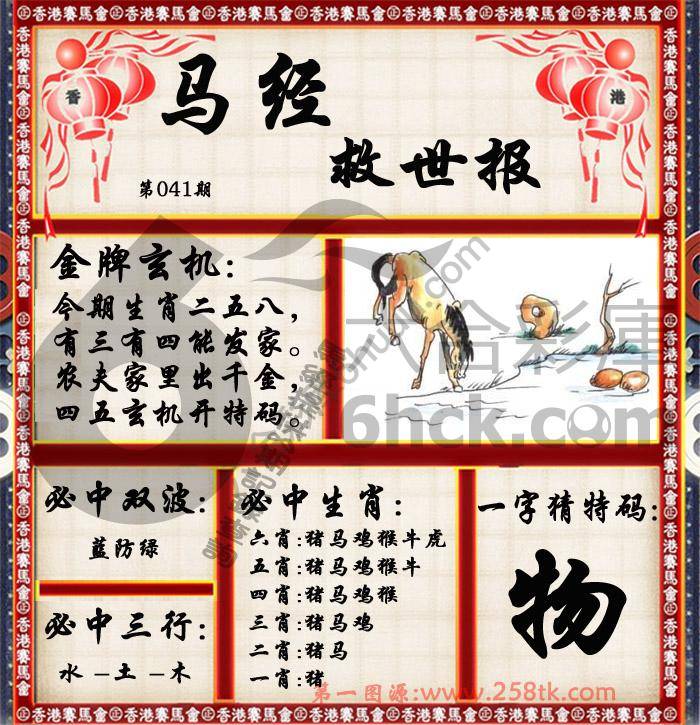 香港賽馬會
香
港
马经
救世报
第041期
金牌玄机:
今期生肖二五八，
有三有四能发家。
农夫家里出千金，
四五玄机开特码。
六合彩庫
6hck.com
必中双波:
藍防绿
必中三行:
水-土-木
必中生肖:
六肖:猪马鸡猴牛虎
五肖:猪马鸡猴牛
四肖:猪马鸡猴
三肖:猪马鸡
二肖:猪马
一肖:猪
一字猜特码:
物
第一图源:www.258tk.com